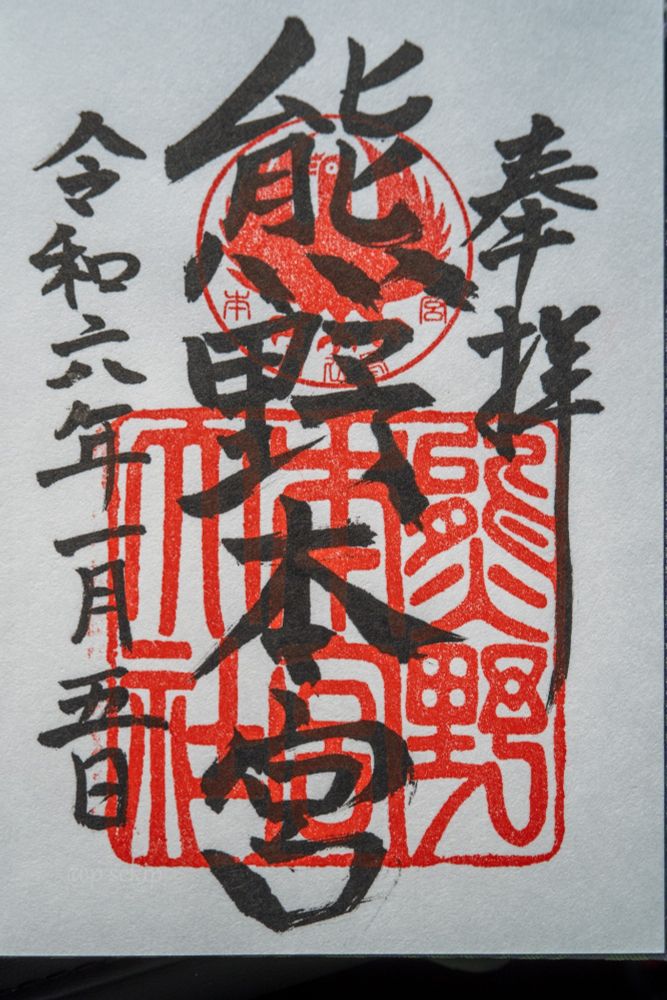 奉拝
熊野本宮
令和六年一月五日
本宮
熊野
本宮
大社